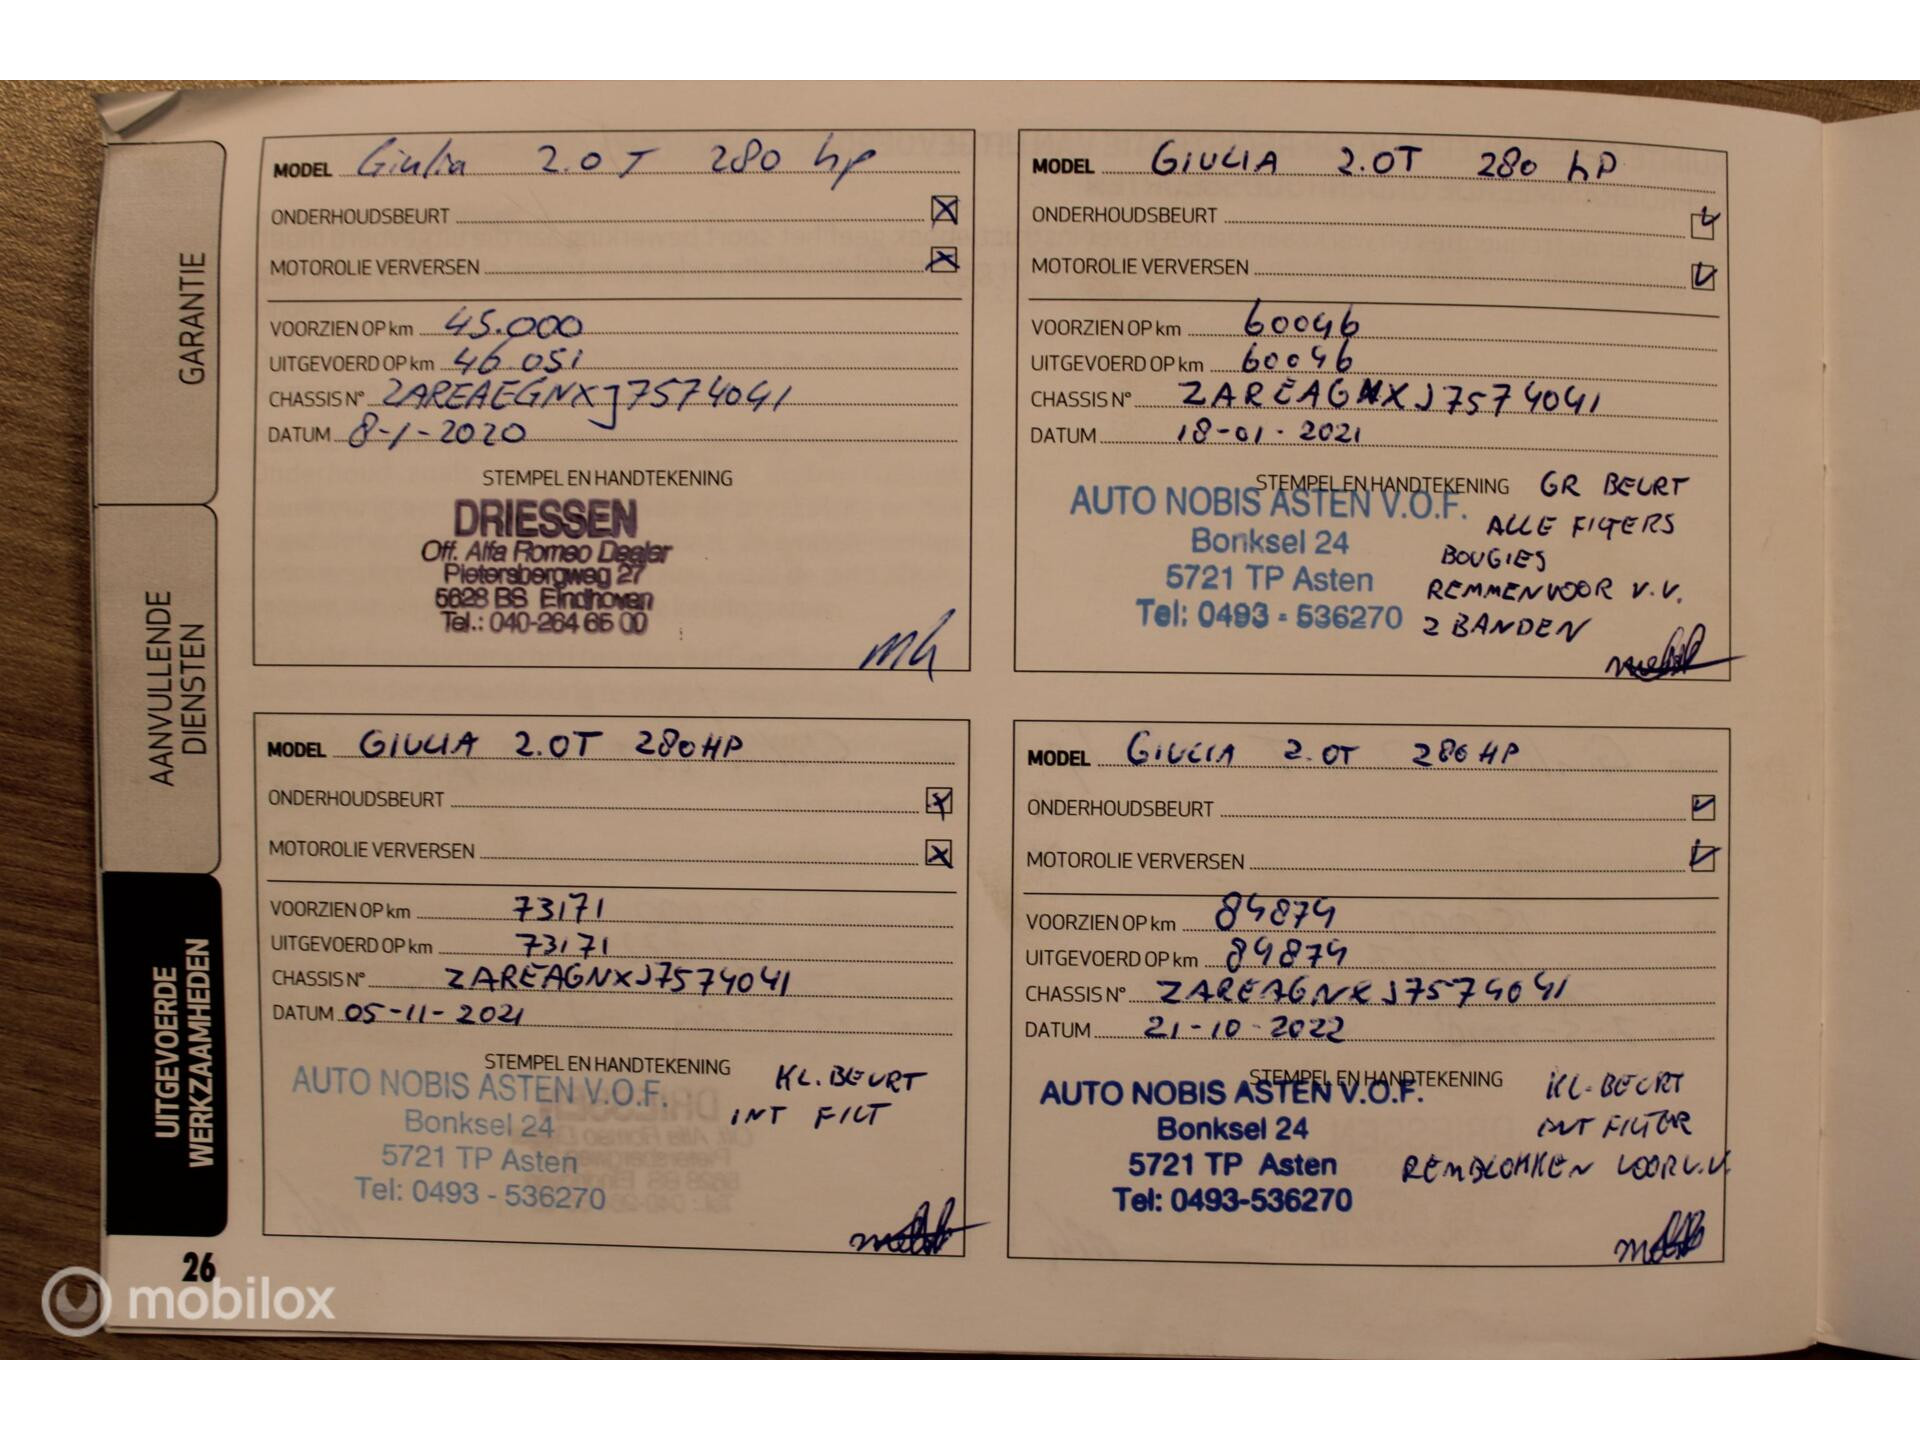 GARANTIE
AANVULLENDE
DIENSTEN
UITGEVOERDE
WERKZAAMHEDEN
MODEL Giulia 2.0 T 280 hp
ONDERHOUDSBEURT
MOTOROLIE VERVERSEN
VOORZIEN OP km 45.000
UITGEVOERD OP km 46.051
CHASSIS N° ZAREAEGNXJ7574041
DATUM 8-1-2020
STEMPEL EN HANDTEKENING
DRIESSEN
Off. Alfa Romeo Dealer
Pietersbergweg 27
5628 BS Eindhoven
Tel.: 040-264 65 00
MODEL GIULIA 2.0T 280 hP
ONDERHOUDSBEURT
MOTOROLIE VERVERSEN
VOORZIEN OP km 60046
UITGEVOERD OP km 60046
CHASSIS N° ZAREAGNXJ7574041
DATUM 18-01-2021
STEMPEL EN HANDTEKENING
AUTO NOBIS ASTEN V.O.F.
Bonksel 24
5721 TP Asten
Tel: 0493 - 536270
GR BEURT
ALLE FILTERS
BOUGIES
REMMEN VOOR V.V.
2 BANDEN
MODEL GIULIA 2.0T 280HP
ONDERHOUDSBEURT
MOTOROLIE VERVERSEN
VOORZIEN OP km 73171
UITGEVOERD OP km 73171
CHASSIS N° ZAREAGNXJ7574041
DATUM 05-11-2021
STEMPEL EN HANDTEKENING
AUTO NOBIS ASTEN V.O.F.
Bonksel 24
5721 TP Asten
Tel: 0493 - 536270
KL. BEURT
INT FILT
MODEL GIULIA 2.0T 280HP
ONDERHOUDSBEURT
MOTOROLIE VERVERSEN
VOORZIEN OP km 84874
UITGEVOERD OP km 84874
CHASSIS N° ZAREAGNXJ7574041
DATUM 21-10-2022
STEMPEL EN HANDTEKENING
AUTO NOBIS ASTEN V.O.F.
Bonksel 24
5721 TP Asten
Tel: 0493-536270
KL-BEURT
INT FILTER
REMBLOKKEN VOOR V.V.
26
mobilox